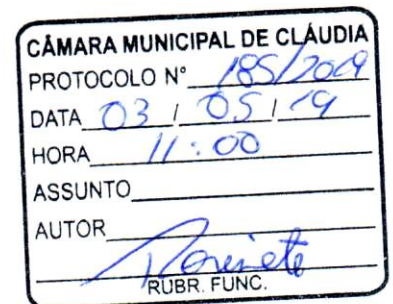 CÂMARA MUNICIPAL DE CLÁUDIA
PROTOCOLO N° 185/2019
DATA 03 / 05 / 19
HORA 11:00
ASSUNTO
AUTOR
RUBR. FUNC.